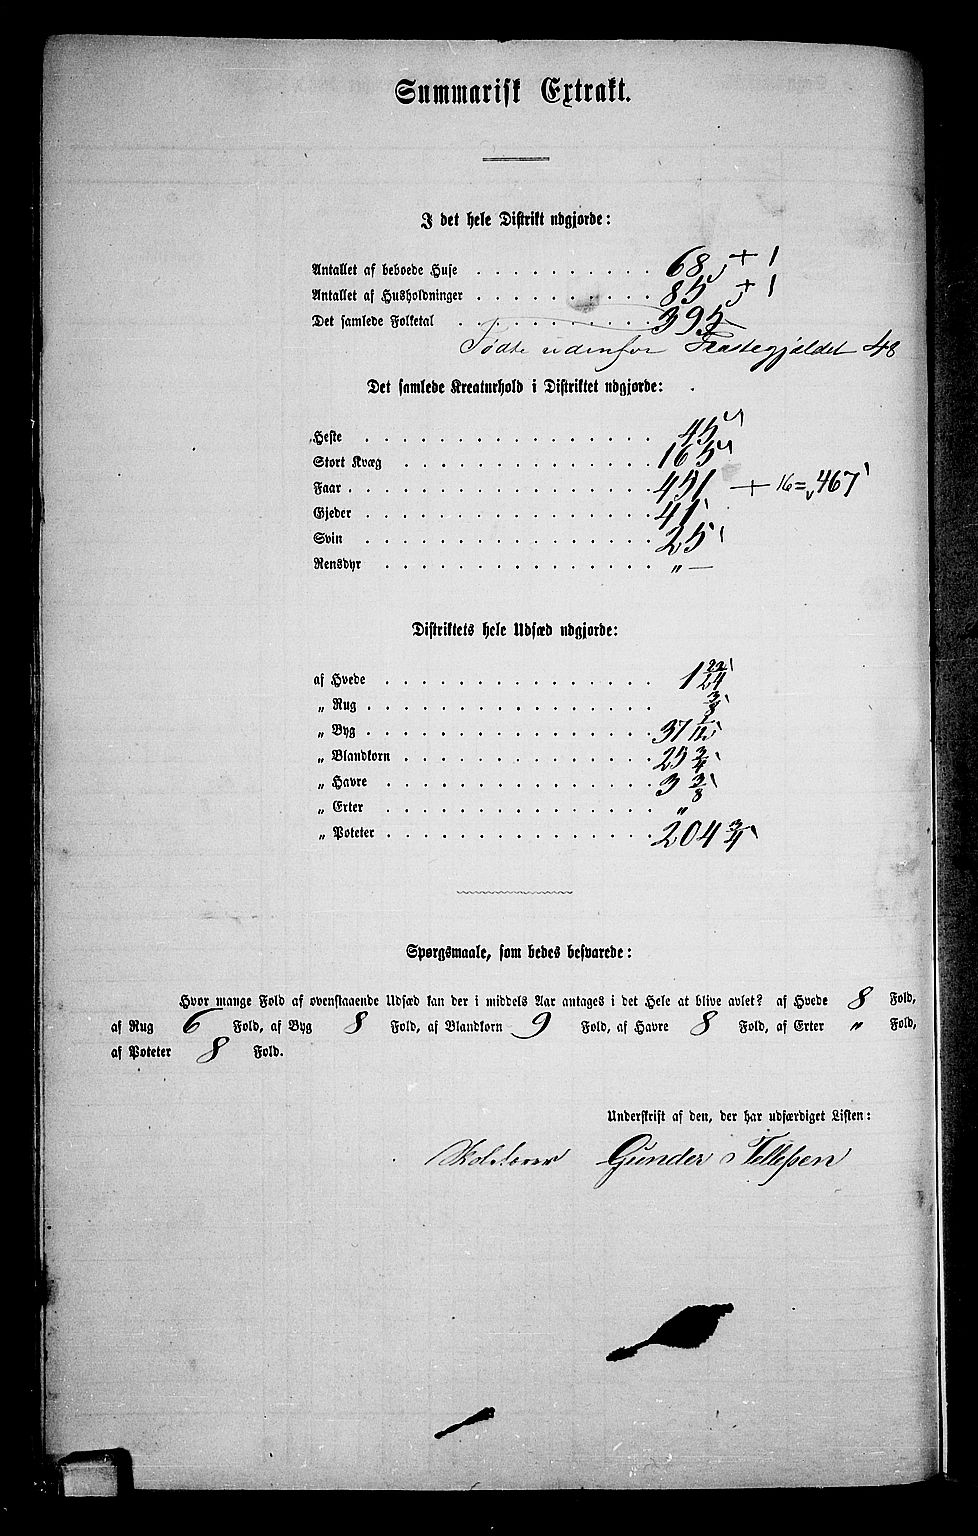 Summarisk Extrakt.
I det hele Distrikt udgjorde:
Antallet af beboede Huse . . . . . . . . . . 68 + 1
Antallet af Husholdninger . . . . . . . . . . 85 + 1
Det samlede Folketal . . . . . . . . . . 395
Fødte udenfor Præstegjeldet 48
Det samlede Kreaturhold i Distriktet udgjorde:
Heste . . . . . . . . . . 45
Stort Kvæg . . . . . . . . . . 165
Faar . . . . . . . . . . 451 + 16 = 467
Gjeder . . . . . . . . . . 41
Svin . . . . . . . . . . 25
Rensdyr . . . . . . . . . . „ —
Distriktets hele Udsæd udgjorde:
af Hvede . . . . . . . . . . 1 22/24
„ Rug . . . . . . . . . . 3/8
„ Byg . . . . . . . . . . 37 1/12
„ Blandkorn . . . . . . . . . . 25 3/4
„ Havre . . . . . . . . . . 3 3/8
„ Erter . . . . . . . . . . „
„ Poteter . . . . . . . . . . 204 3/4
Spørgsmaale, som bedes besvarede:
Hvor mange Fold af ovenstaaende Udsæd kan der i middels Aar antages i det Hele at blive avlet? af Hvede 8 Fold,
af Rug 6 Fold, af Byg 8 Fold, af Blandkorn 9 Fold, af Havre 8 Fold, af Erter „ Fold,
af Poteter 8 Fold.
Underskrift af den, der har udfærdiget Listen:
Skolelærer Gunder Tellefsen